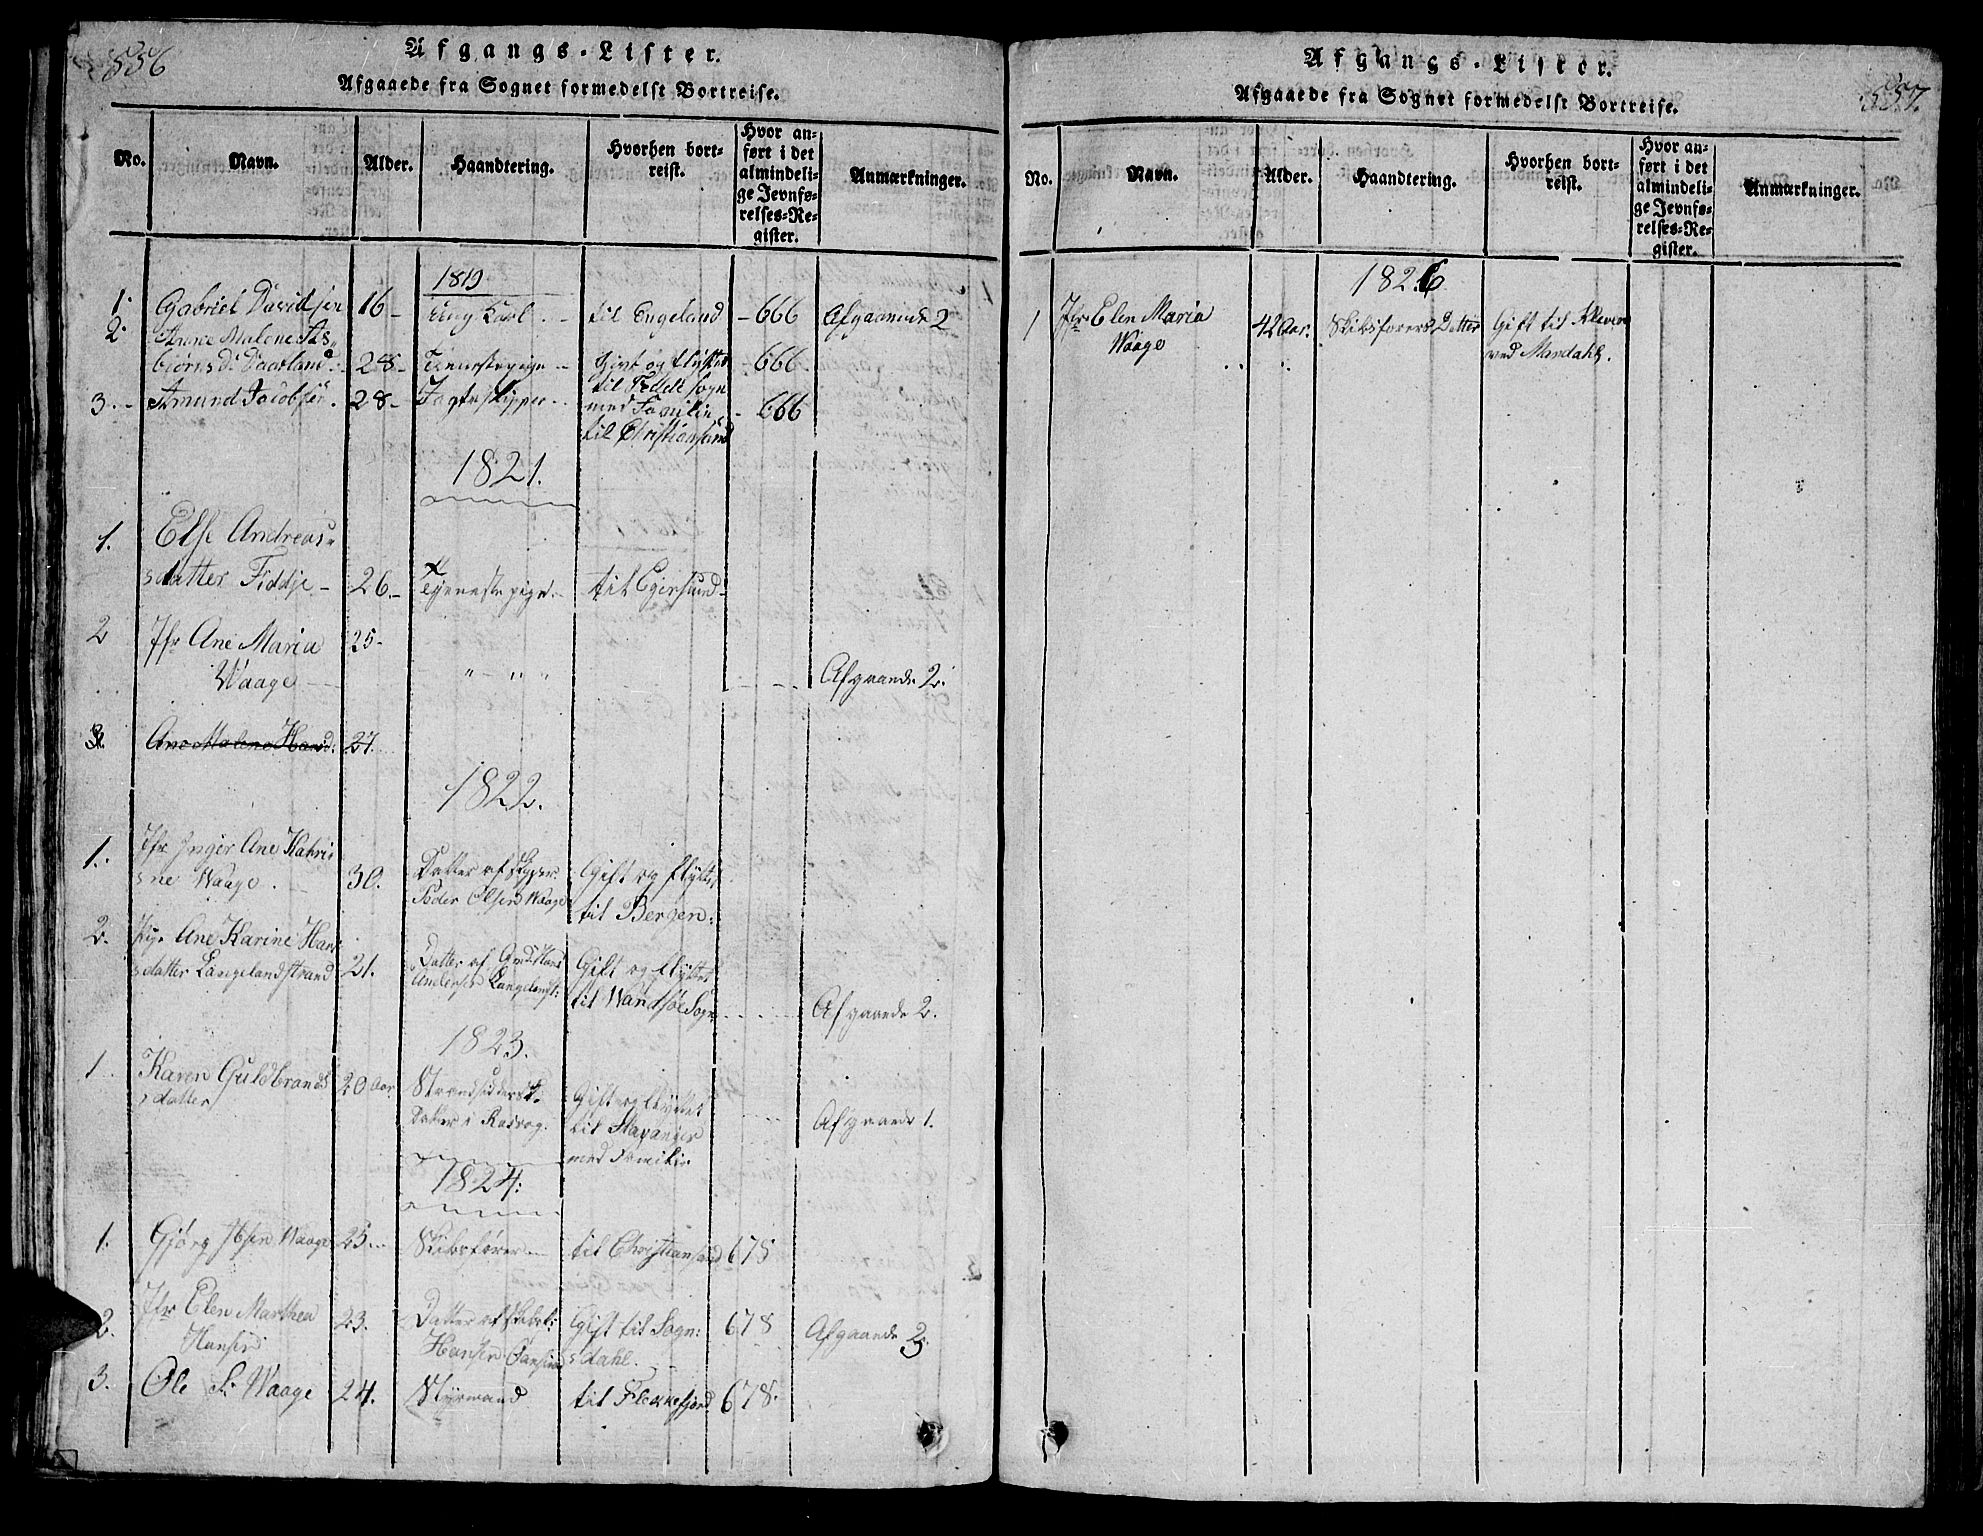 556
Afgangs-Lister.
Afgaaede fra Sognet formedelst Bortreise.
No. Navn. Alder. Haandtering. Hvorhen bortreist. Hvor anført i det almindelige Jevnførelses-Register. Anmærkninger.
1819
1. Gabriel Davidsen 16 - ung Karl - til Engeland - 666 Afgaaende 2
2. Anne Malene As-
biørnsd. 28 - Tienestepige - Givt og flyttet - 666
til Sogn
3. - Amund Jacobsen. 28 - Jagteskipper - med Familie - 666
til Christiansand
1821.
1. Else Andreas-
datter Fiddje - 26. - Tjenestepige - til Egersund -
2 Jfr Ane Maria 25 -
Waage Afgaaende 2.
3. Ane Malene Hansd. 27.
1822.
1. Jfr Inger Ane Kathri-
ne Waage. 30. Datter af Skipper Gift og flyttet
Peder Olsen Waage til Bergen:
2. Pige Ane Karine Hans
datter Langelandstrand 21. Datter af Hans Gift og flyttet
Andersen til Sogn Afgaaende 2.
1823.
1 Karen Guldbrands 20 Aar.
datter Datter i Gift og flyttet
til Stavanger Afgaaende 1.
med Familie
1824.
1. Gjørg Waage 25. - Skibsfører - til Christiansand 675
2. Jfr Elen Marthea 23. Datter af Gift til Sogn: 678 Afgaaende 3
Hansen Hansen dahl.
3. Ole Waage 24. Styrmand til Flekkefjord 678.
557.
Afgangs-Lister.
Afgaaede fra Sognet formedelst Bortreise.
No. Navn. Alder. Haandtering. Hvorhen bortreist. Hvor anført i det almindelige Jevnførelses-Register. Anmærkninger.
1826
1 Jfr Elen Maria 42 Aar. Skibsførers Datter Gift til Kleven
Waage ved Mandahl.